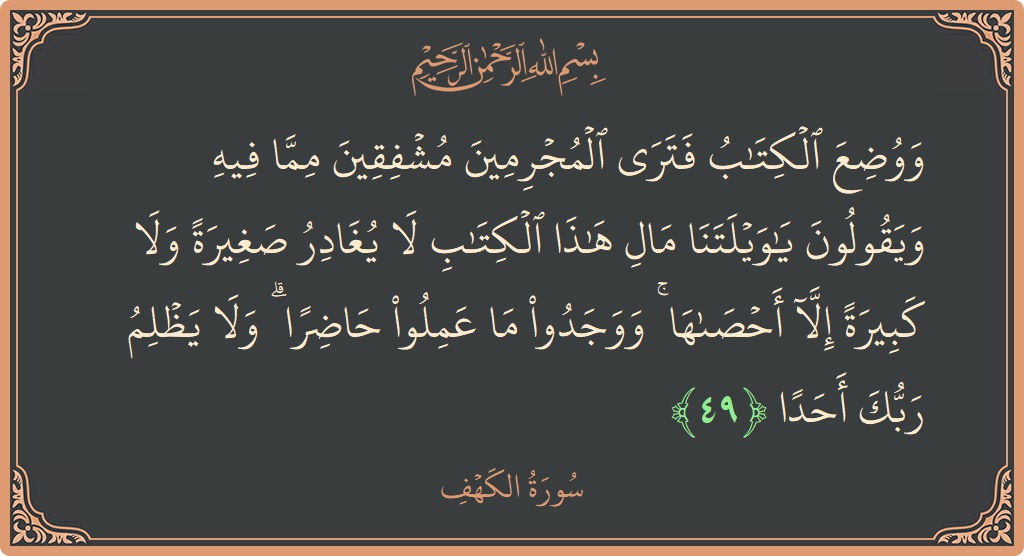 بِسْمِ اللَّهِ الرَّحْمَٰنِ الرَّحِيمِ
وَوُضِعَ ٱلْكِتَـٰبُ فَتَرَى ٱلْمُجْرِمِينَ مُشْفِقِينَ مِمَّا فِيهِ
وَيَقُولُونَ يَـٰوَيْلَتَنَا مَالِ هَـٰذَا ٱلْكِتَـٰبِ لَا يُغَادِرُ صَغِيرَةً وَلَا
كَبِيرَةً إِلَّآ أَحْصَىٰهَا ۚ وَوَجَدُوا۟ مَا عَمِلُوا۟ حَاضِرًا ۗ وَلَا يَظْلِمُ
رَبُّكَ أَحَدًا ﴿٤٩﴾
سُورَةُ الكَهْفِ